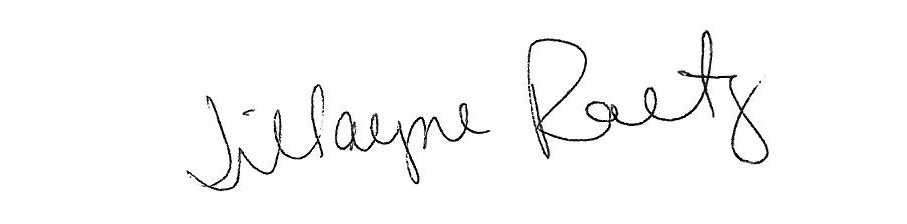 Jillayne Raetz